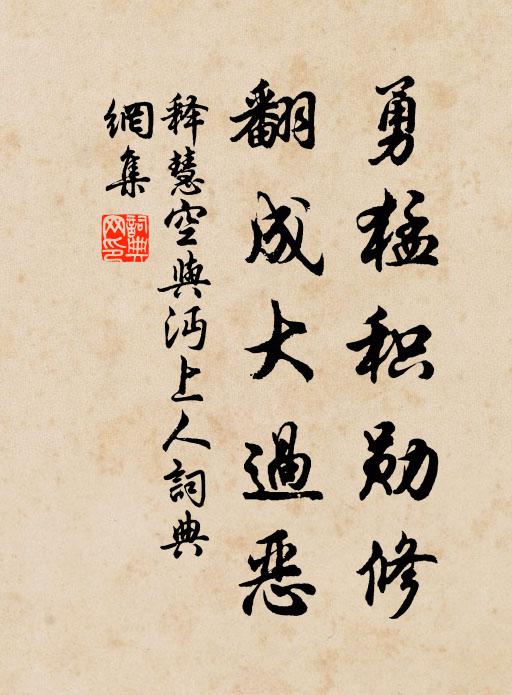 勇猛积勋修
翻成大過恶
释慧空與沔上人詞典
網集
詞典
网印